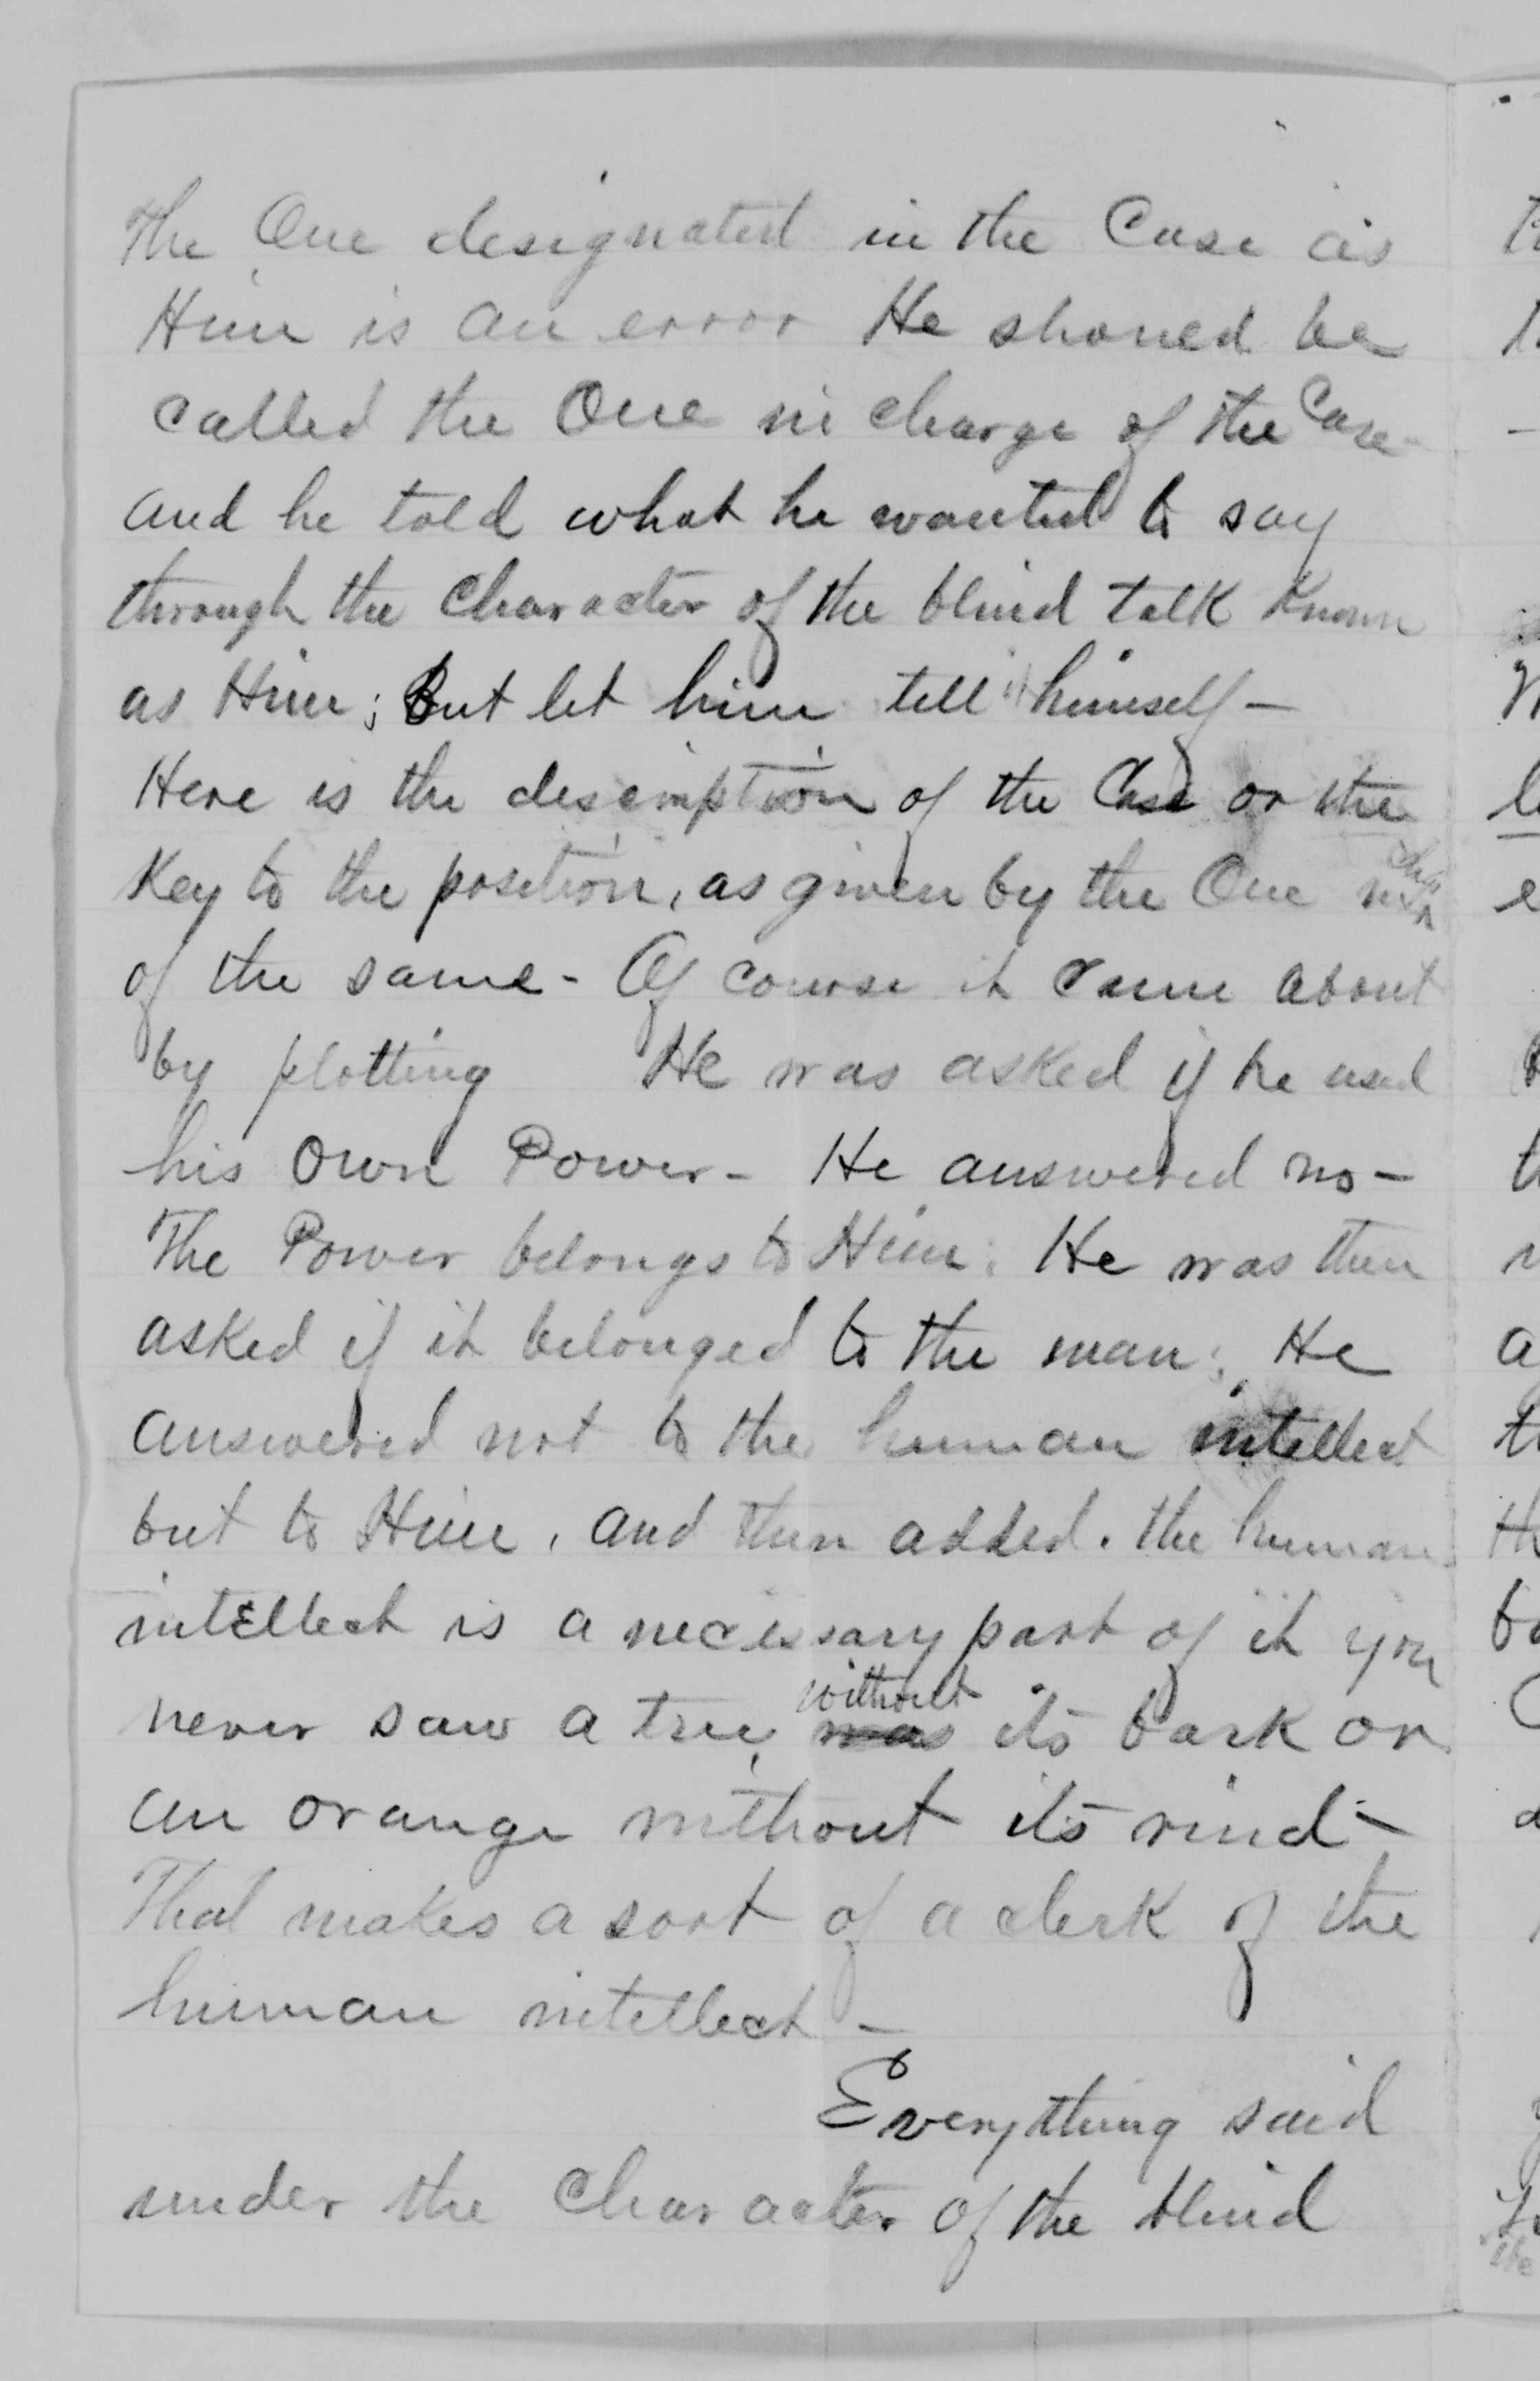 The One designated in the Case as
Him is an error He should be
called the One in charge of the Case -
and he told what he wanted to say
through the Character of the blind talk known
as Him; But let him tell it himself -
Here is the description of the Case or the
Key to the position, as given by the One in
of the same - Of course it came about
by plotting He was asked if he used
his own Power - He answered no -
The Power belongs to Him: He was then
asked if it belonged to the man; He
answered not to the human intellect
but to Him, and then added. the human
intellect is a necessary part of it you
never saw a tree, without was its bark or
an orange without its rind -
That makes a sort of a clerk of the
human intellect -
Everything said
under the Character of the blind